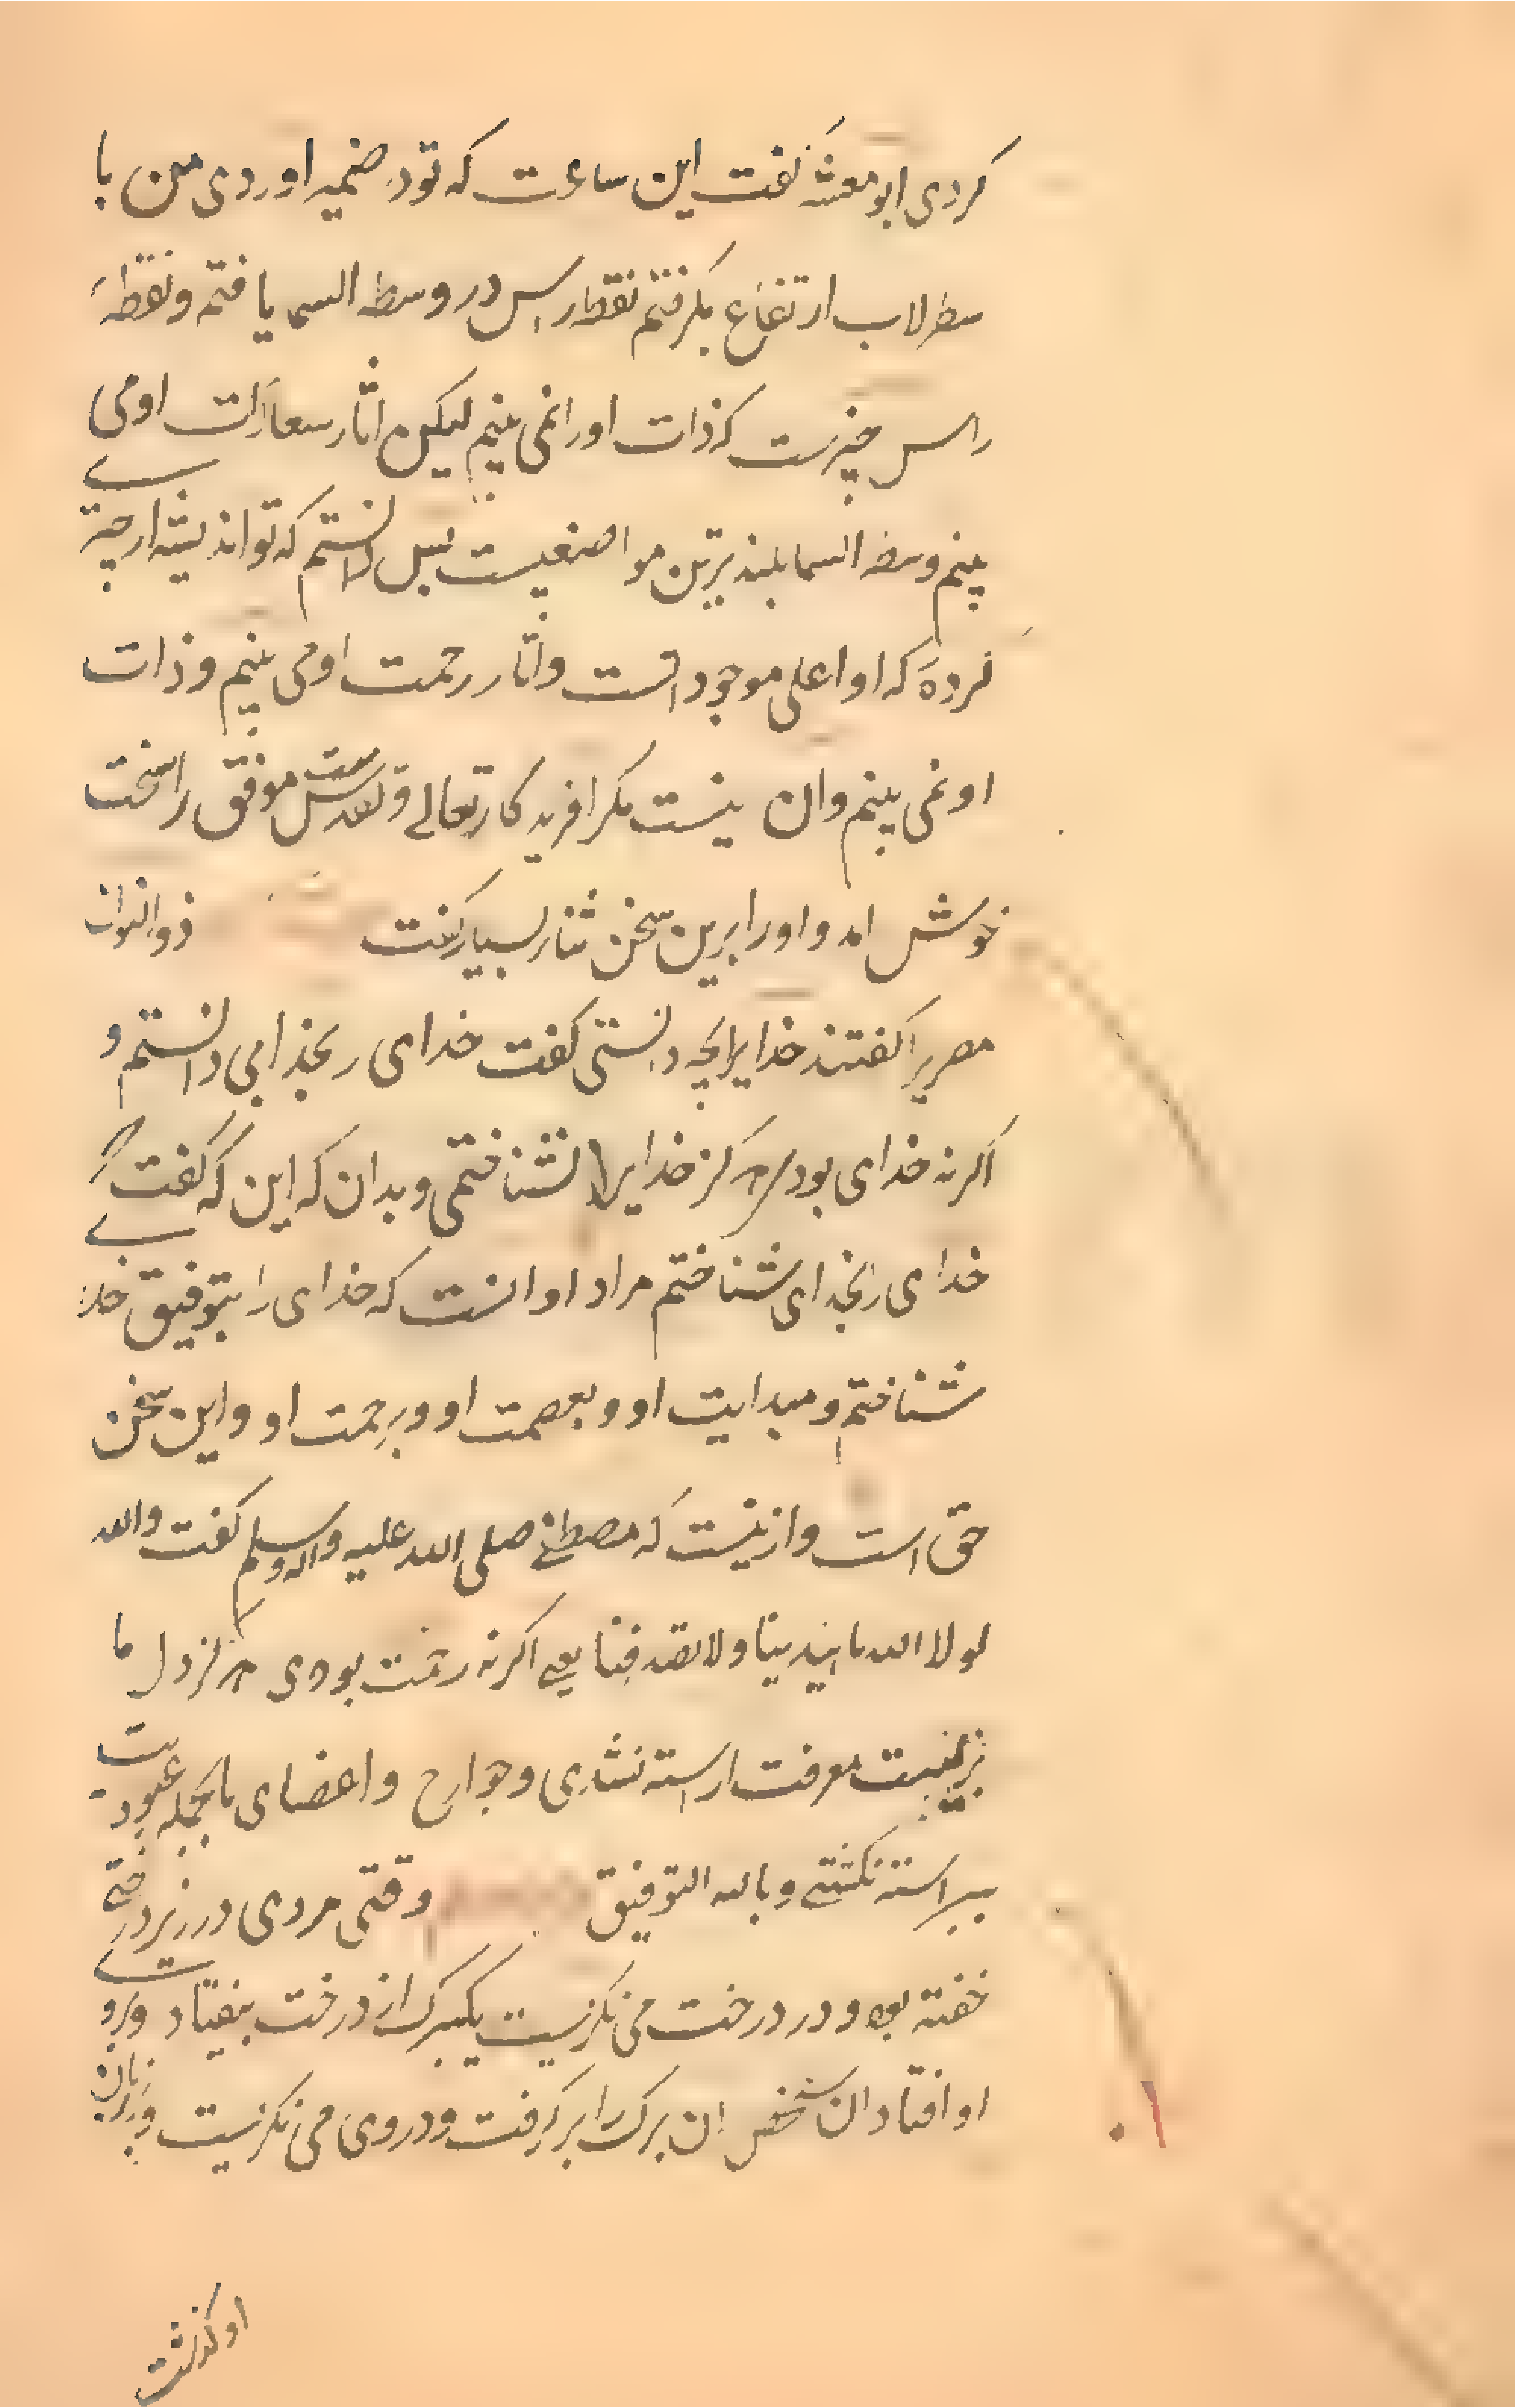 کردی ابو معشر گفت این ساعت که تو در ضمیر اوردی من با
سطرلاب ارتفاع بگرفتم نقطه راس در وسط السما یافتم و نقطهٔ
راس چیزیست که ذات او را نمی بینم لیکن اثار سعادات او می
بینم وسط السما بلندترین مواضعیست پس دانستم که تو اندیشه از چیزی
کردهٔ که او اعلی موجوداتست و اثار رحمت او می بینم و ذات
او نمی بینم و ان نیست مگر افریدکار تعالی و تقدست موفق را سخت
خوش امد و او را برین سخن ثنا بسیار گفت ذوالنون
مصریرا گفتند خدایرا بچه دانستی گفت خدای را بخدایی دانستم و
اگر نه خدای بودی هرگز خدایرا نشناختمی و بدان که این که گفت
خدای را بخدای شناختم مراد او انست که خدای را بتوفیق خدای
شناختم و بهدایت او و بعصمت او و برحمت او و این سخن
حق است و ازینست که مصطفی صلی الله علیه واله وسلم گفت والله
لولا الله ما اهتدینا ولا تصدقنا یعنی اگر نه رحمت بودی هرگز دل ما
بزینت معرفت اراسته نشدی و جوارح و اعضای ما بحله عبودیت
پیراسته نگشتی و بالله التوفیق وقتی مردی در زیر درختی
خفته بود و در درخت می نگریست یکبرک از درخت بیفتاد و برو
او افتاد ان شخص ان برک را برگرفت و در وی می نگریست و بر زبان
او گذشت